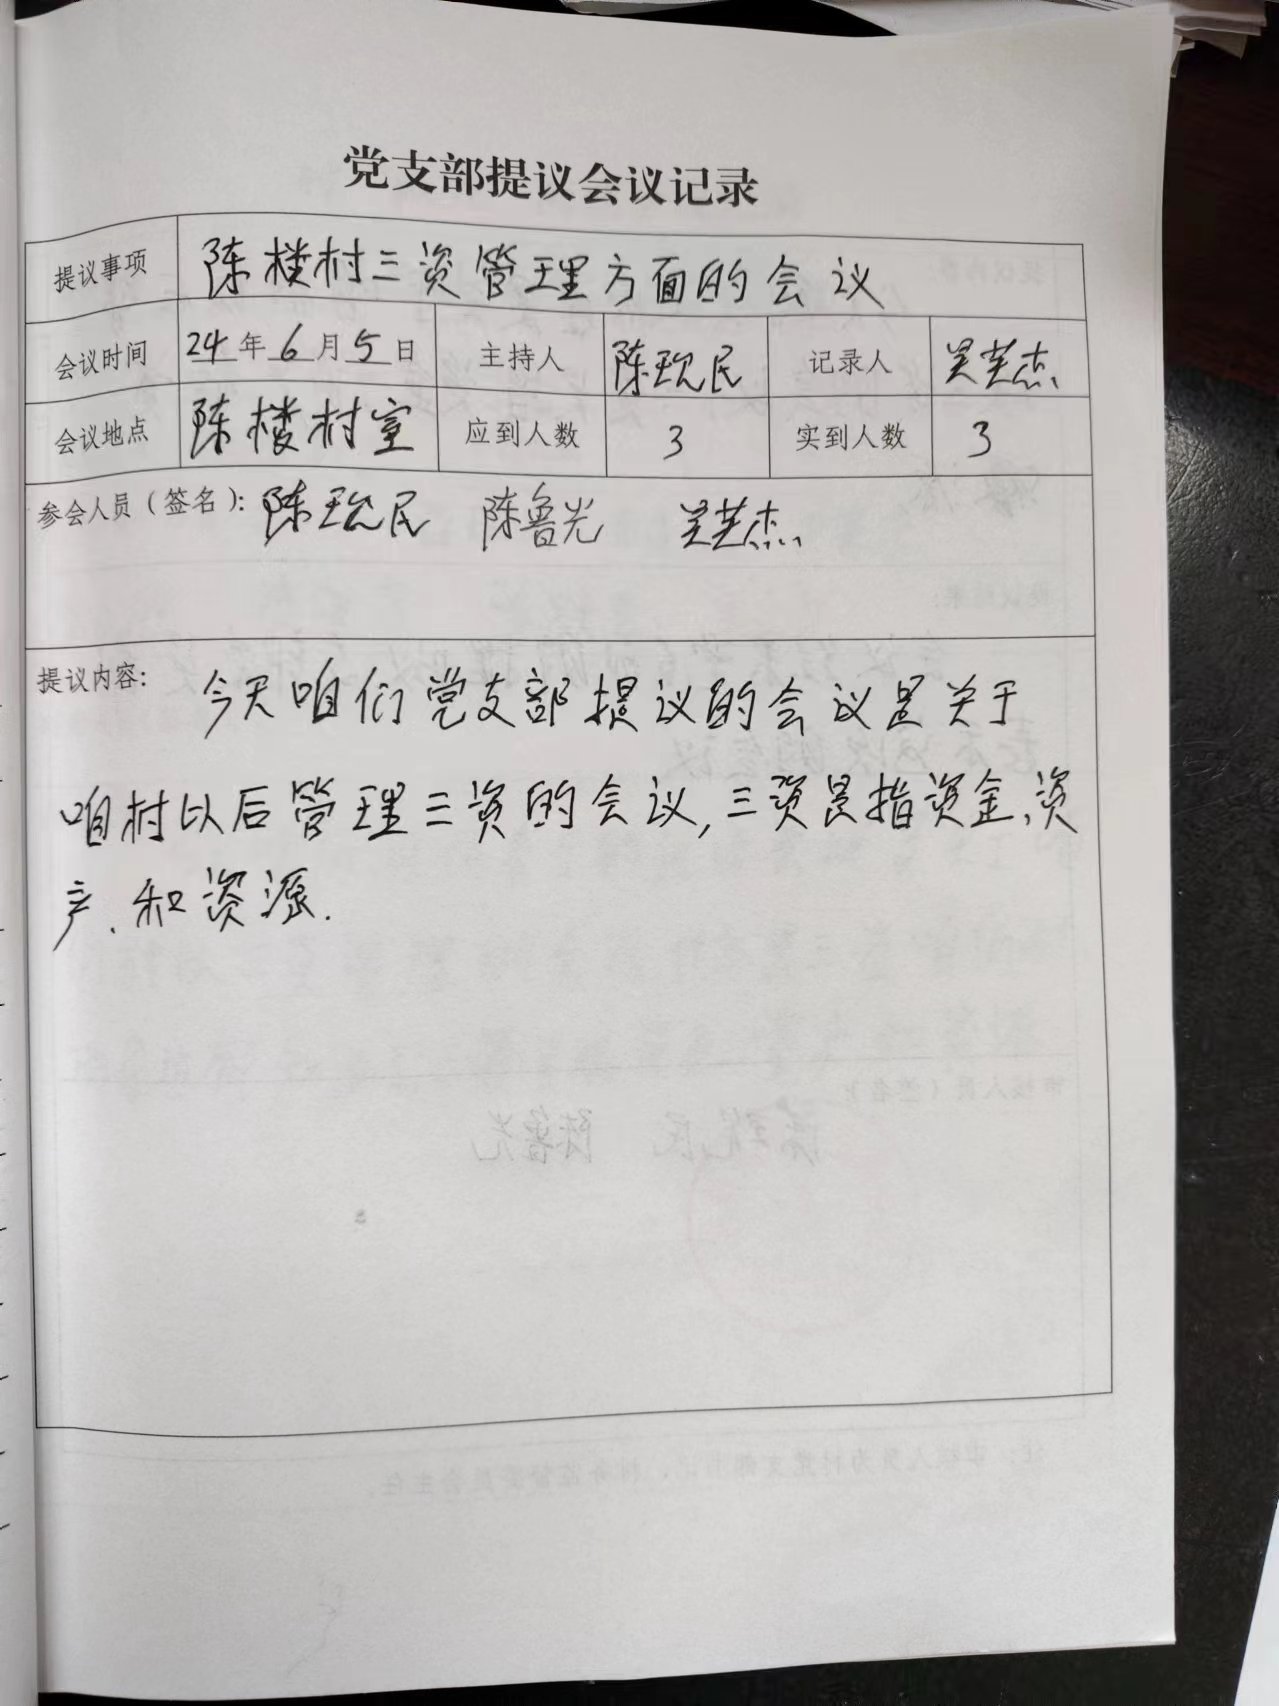 党支部提议会议记录
提议事项 陈楼村三资管理方面的会议
会议时间 24年6月5日 主持人 陈现民 记录人 吴芝杰
会议地点 陈楼村室 应到人数 3 实到人数 3
参会人员（签名）： 陈现民 陈鲁光 吴芝杰
提议内容： 今天咱们党支部提议的会议是关于
咱村以后管理三资的会议,三资是指资金、资
产、和资源.